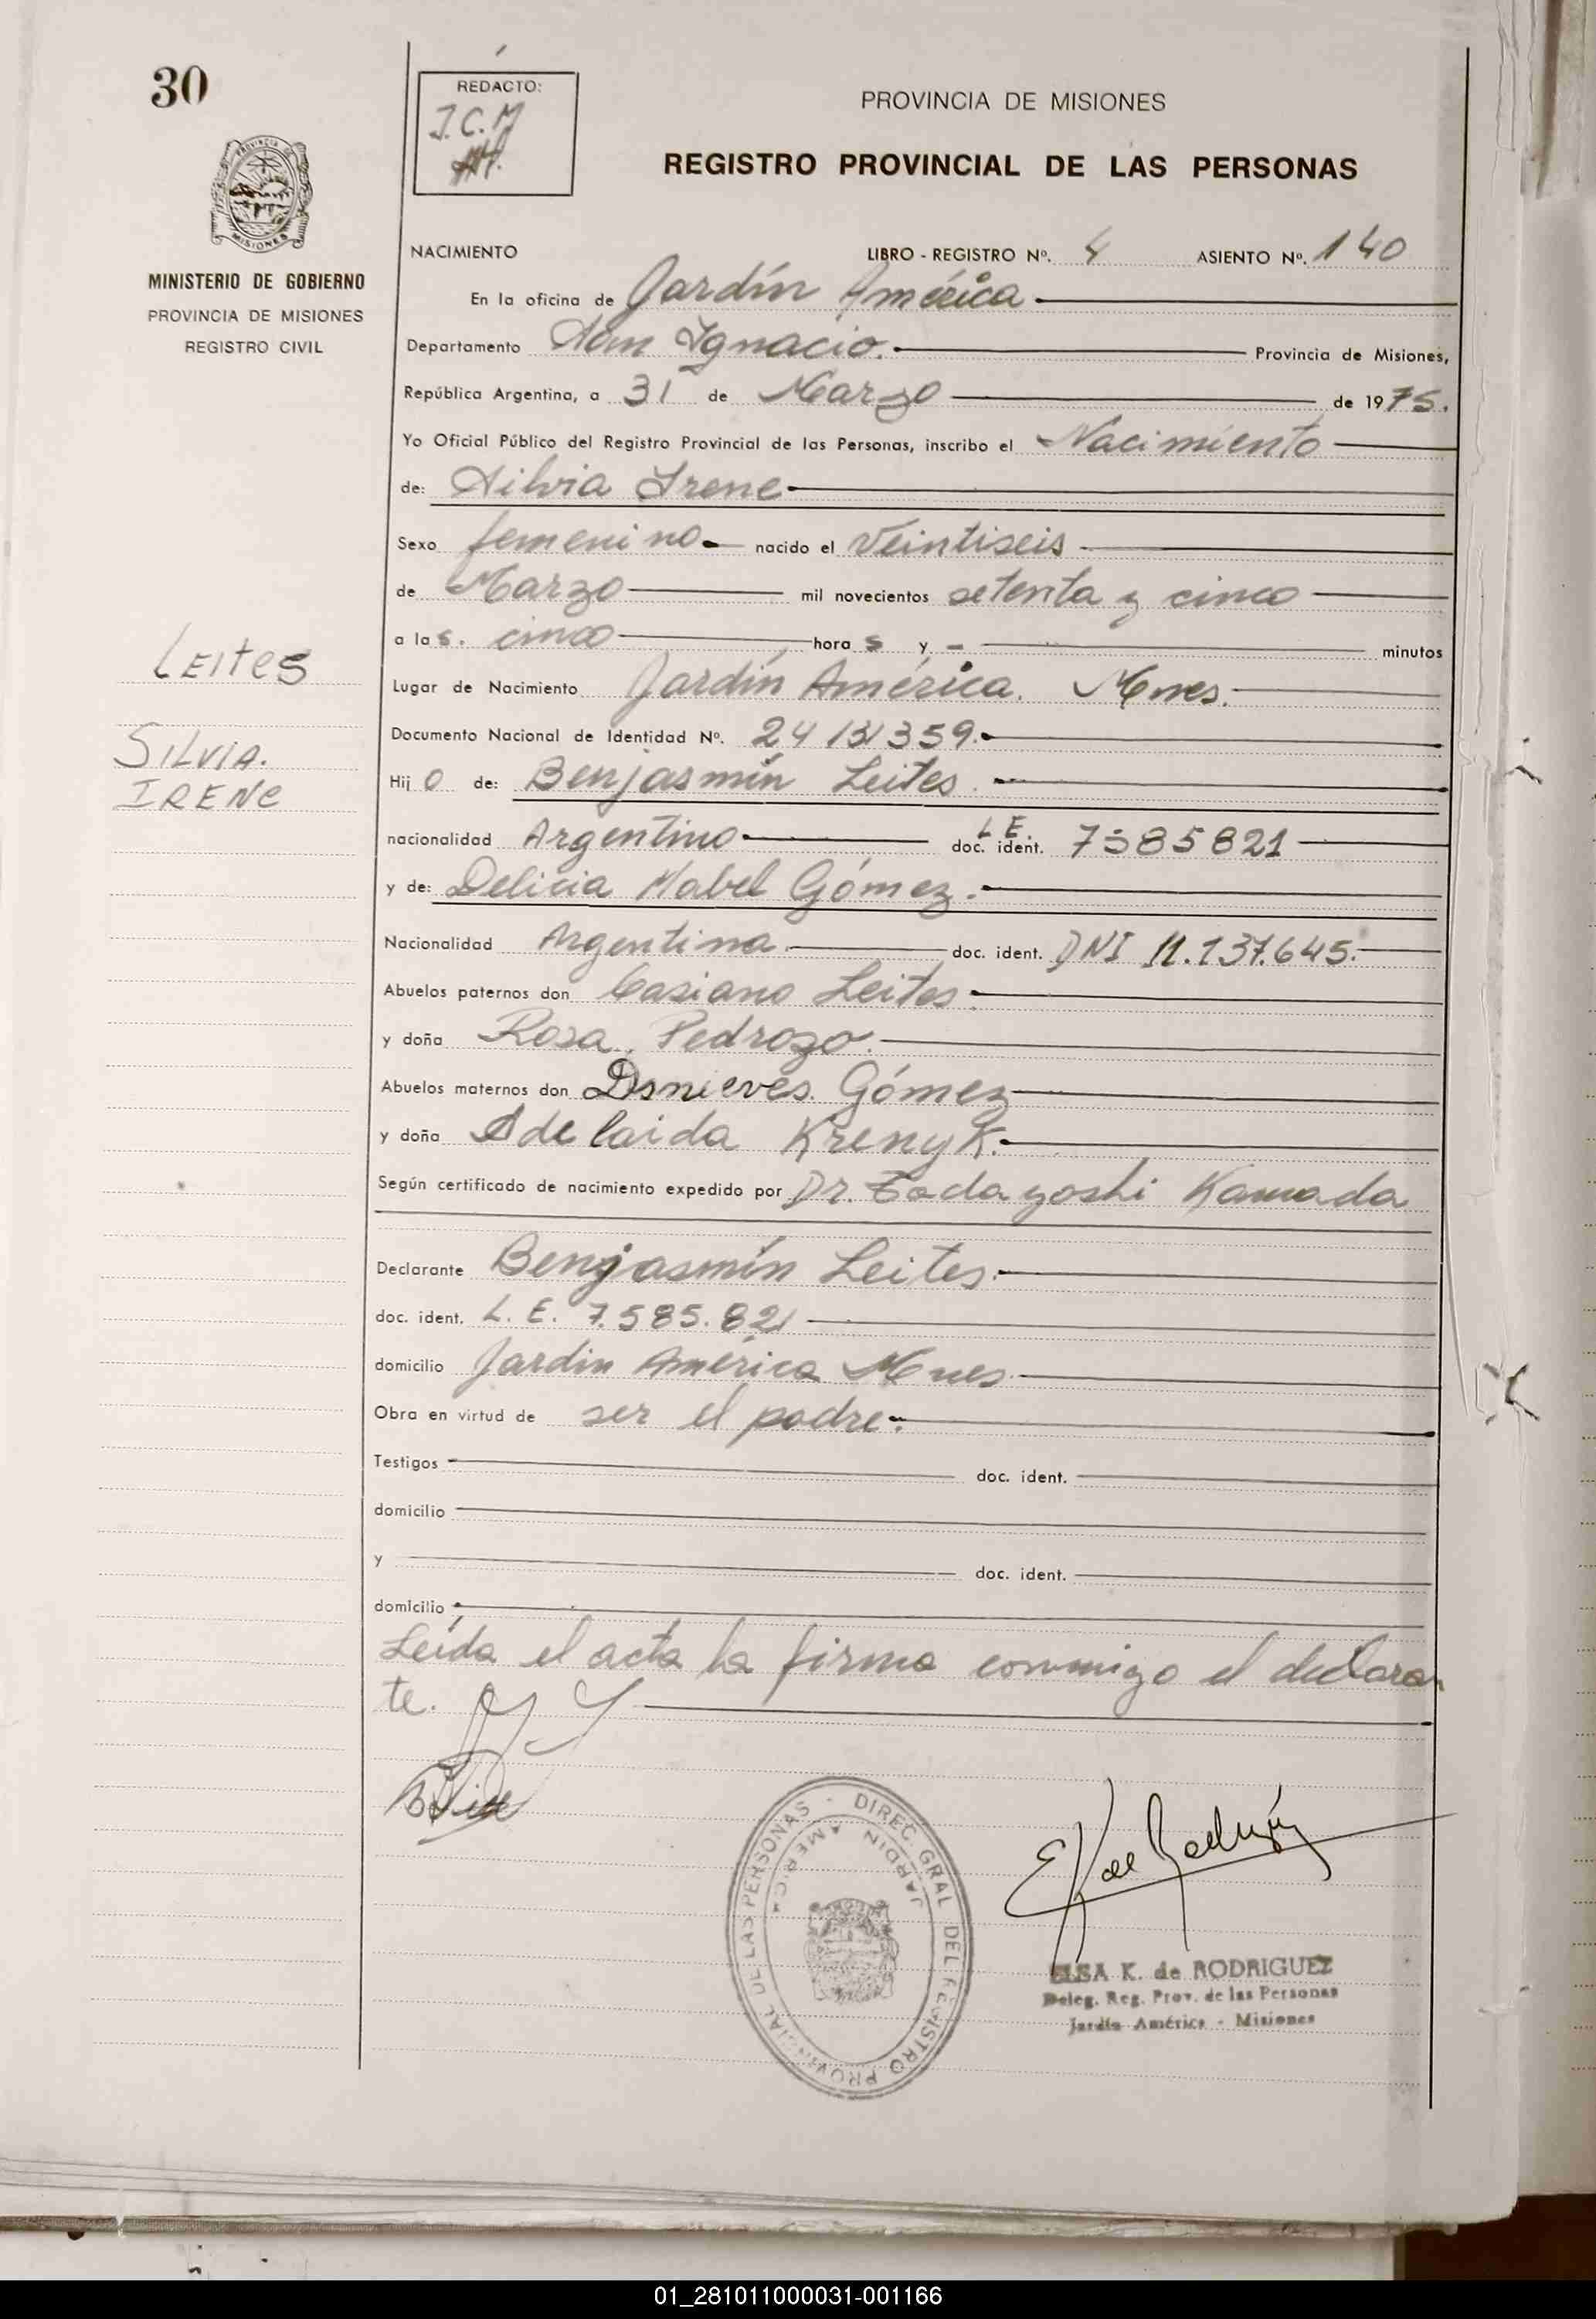 30
REDACTO:
J.C.M
PROVINCIA DE MISIONES
REGISTRO PROVINCIAL DE LAS PERSONAS
PROVINCIA DE
MISIONES
MINISTERIO DE GOBIERNO
PROVINCIA DE MISIONES
REGISTRO CIVIL
NACIMIENTO LIBRO - REGISTRO Nº. 4 ASIENTO Nº. 140
En la oficina de Jardín América
Departamento San Ignacio. Provincia de Misiones,
República Argentina, a 31 de Marzo de 1975.
Yo Oficial Público del Registro Provincial de las Personas, inscribo el Nacimiento
de: Silvia Irene
Sexo femenino nacido el Veintiseis
de Marzo mil novecientos setenta y cinco
a las. cinco horas y - minutos
Leites
Lugar de Nacimiento Jardín América. Mnes.
Documento Nacional de Identidad Nº. 24 131359.
SILVIA.
IRENE
Hijo de: Benjasmín Leites.
nacionalidad Argentino L.E. doc. ident. 7585821
y de: Delicia Mabel Gómez.
Nacionalidad Argentina doc. ident. DNI 11.137.645.
Abuelos paternos don Casiano Leites
y doña Rosa Pedrozo.
Abuelos maternos don Dsnieves Gómez
y doña Adelaida Krenyk.
Según certificado de nacimiento expedido por Dr. Tadayoshi Kamada
Declarante Benjasmín Leites.
doc. ident. L. E. 7.585.821
domicilio Jardin América Mnes
Obra en virtud de ser el padre.
Testigos doc. ident.
domicilio
y doc. ident.
domicilio
Leída el acta la firma conmigo el declaran
te.
DIREC. GRAL DEL REGISTRO PROVINCIAL DE LAS PERSONAS -
JARDIN AMERICA
E K de Rodríguez
ELSA K. de RODRIGUEZ
Deleg. Reg. Prov. de las Personas
Jardín América - Misiones
01_281011000031-001166